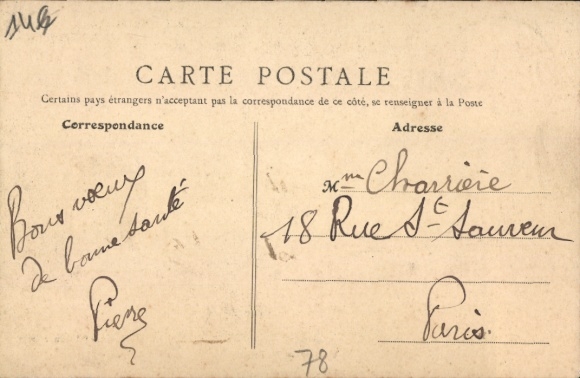 CARTE POSTALE
Certains pays étrangers n'acceptant pas la correspondance de ce côté, se renseigner à la Poste
Correspondance
Adresse
Bons vœux
de bonne santé
Pierre
Mme Charrière
18 Rue St Sauveur
Paris
78